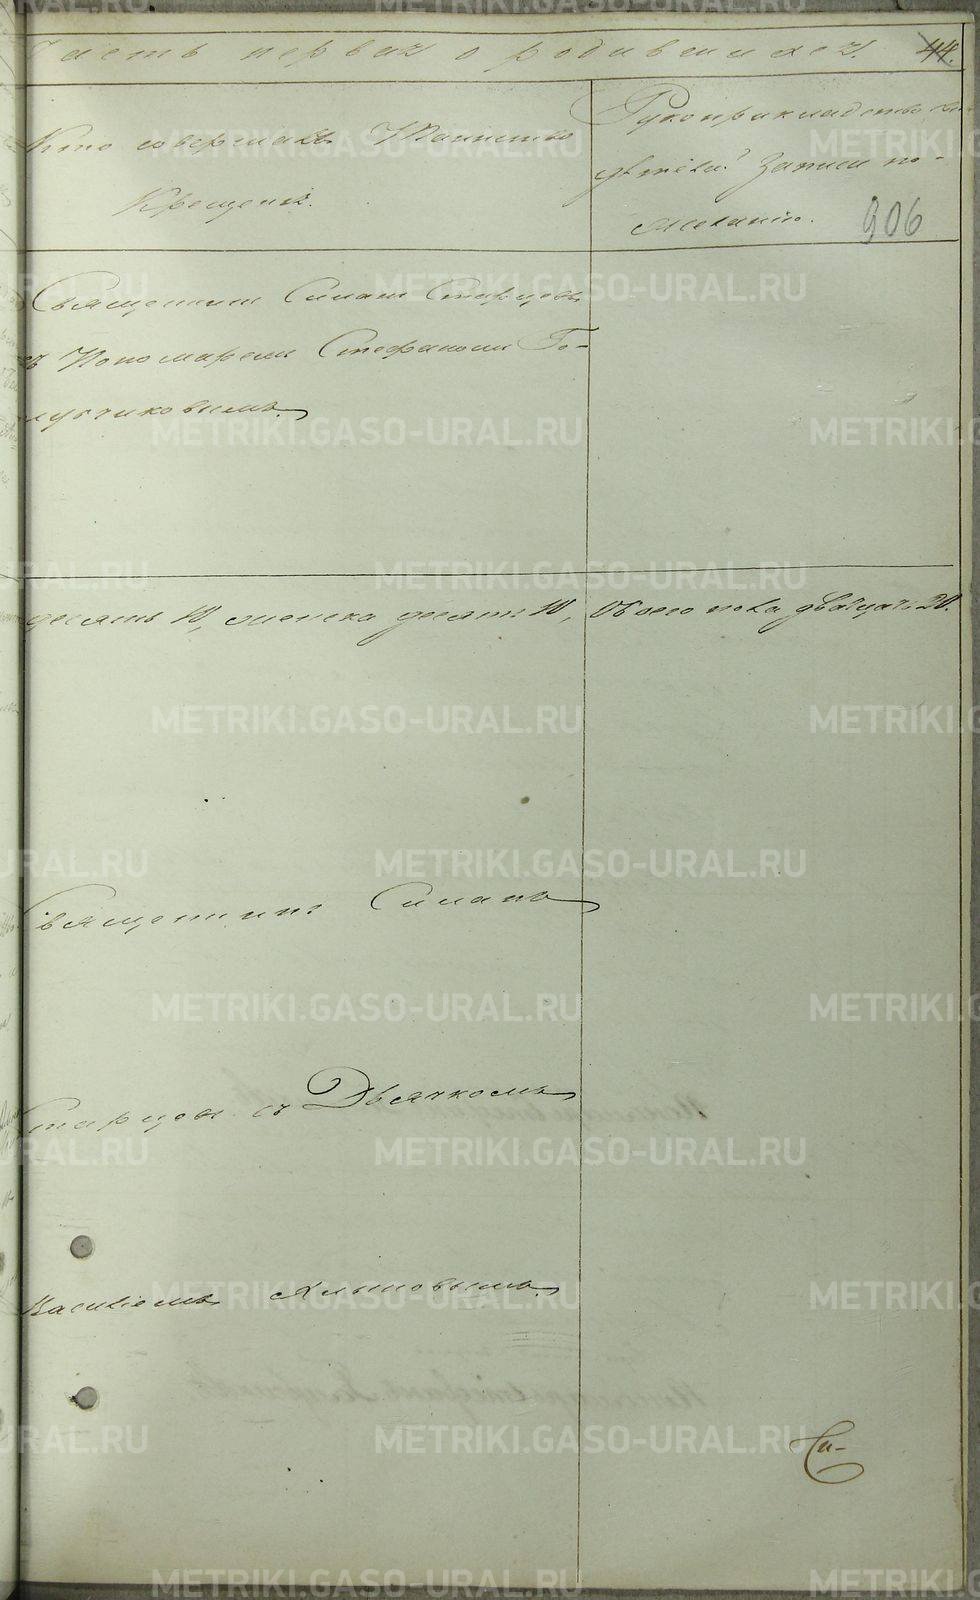 Часть первая о родившихся. 44.
Кто совершалъ Таинство
Крещенія.
Рукоприкладство сви-
дѣтелей записи по
желанію.
906
Священникъ Симонъ Старцовъ
съ Пономаремъ Стефаномъ Го-
лубчиковымъ.
десять 10, женска десять 10, обоего пола двадцать 20.
Священникъ Симонъ
Старцовъ съ Дьячкомъ
Василіемъ
Си-
METRIKI.GASO-URAL.RU